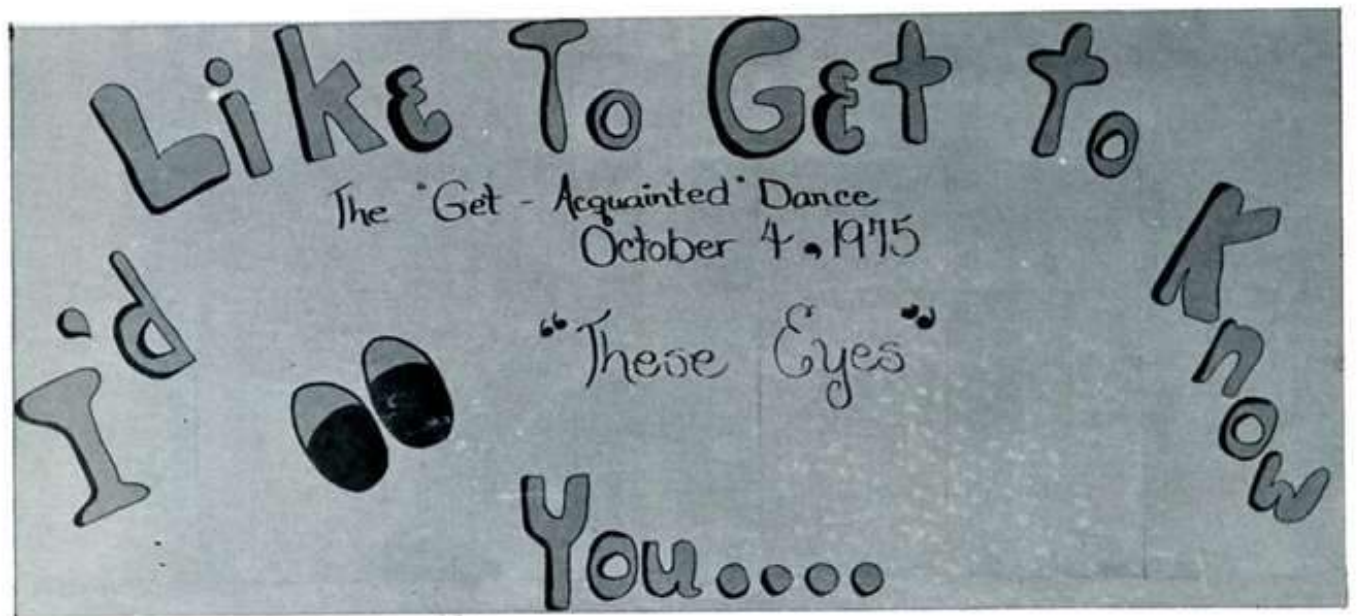 I'd Like To Get to Know
The "Get - Acquainted" Dance
October 4, 1975
"These Eyes"
You....